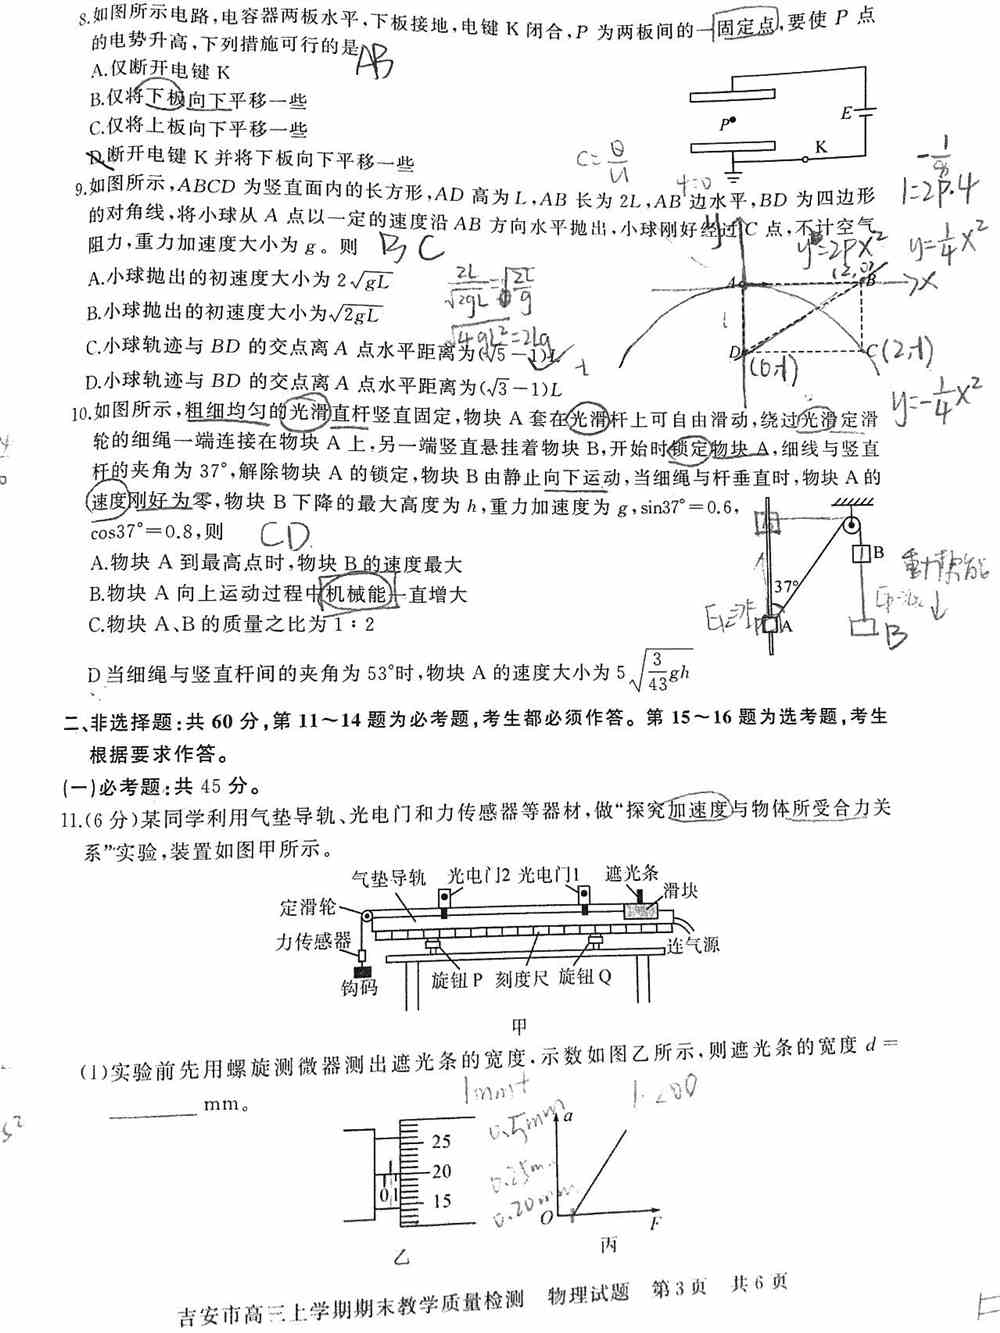 8.如图所示电路,电容器两板水平,下板接地,电键 K 闭合,P 为两板间的一固定点,要使 P 点
的电势升高,下列措施可行的是 AB
A.仅断开电键 K
B.仅将下板向下平移一些
C.仅将上板向下平移一些
D.断开电键 K 并将下板向下平移一些
P
E
K
C=Q/U
φ=0
9.如图所示,ABCD 为竖直面内的长方形,AD 高为 L,AB 长为 2L,AB 边水平,BD 为四边形
的对角线,将小球从 A 点以一定的速度沿 AB 方向水平抛出,小球刚好经过 C 点,不计空气
阻力,重力加速度大小为 g。则 BC
A.小球抛出的初速度大小为 2√gL
B.小球抛出的初速度大小为√2gL
C.小球轨迹与 BD 的交点离 A 点水平距离为(√5-1)L
D.小球轨迹与 BD 的交点离 A 点水平距离为(√3-1)L
1=2P·4
y=2Px²
y=1/4x²
(2,0)
A
B
x
D
(0,-1)
C(2,-1)
y=-1/4x²
10.如图所示,粗细均匀的光滑直杆竖直固定,物块 A 套在光滑杆上可自由滑动,绕过光滑定滑
轮的细绳一端连接在物块 A 上,另一端竖直悬挂着物块 B,开始时锁定物块 A,细线与竖直
杆的夹角为 37°,解除物块 A 的锁定,物块 B 由静止向下运动,当细绳与杆垂直时,物块 A 的
速度刚好为零,物块 B 下降的最大高度为 h,重力加速度为 g,sin37°=0.6,
cos37°=0.8,则 CD
A.物块 A 到最高点时,物块 B 的速度最大
B.物块 A 向上运动过程中机械能一直增大
C.物块 A、B 的质量之比为 1∶2
D 当细绳与竖直杆间的夹角为 53°时,物块 A 的速度大小为 5√(3/43 gh)
B
37°
A
B
二、非选择题:共 60 分,第 11～14 题为必考题,考生都必须作答。第 15～16 题为选考题,考生
根据要求作答。
(一)必考题:共 45 分。
11.(6 分)某同学利用气垫导轨、光电门和力传感器等器材,做“探究加速度与物体所受合力关
系”实验,装置如图甲所示。
气垫导轨 光电门2 光电门1 遮光条
滑块
定滑轮
力传感器
连气源
钩码
旋钮 P 刻度尺 旋钮 Q
甲
(1)实验前先用螺旋测微器测出遮光条的宽度,示数如图乙所示,则遮光条的宽度 d=
________ mm。
1mm+
1.200
0.5mm
0.20mm
25
20
15
0 1
乙
a
O
F
丙
吉安市高三上学期期末教学质量检测 物理试题 第 3 页 共 6 页